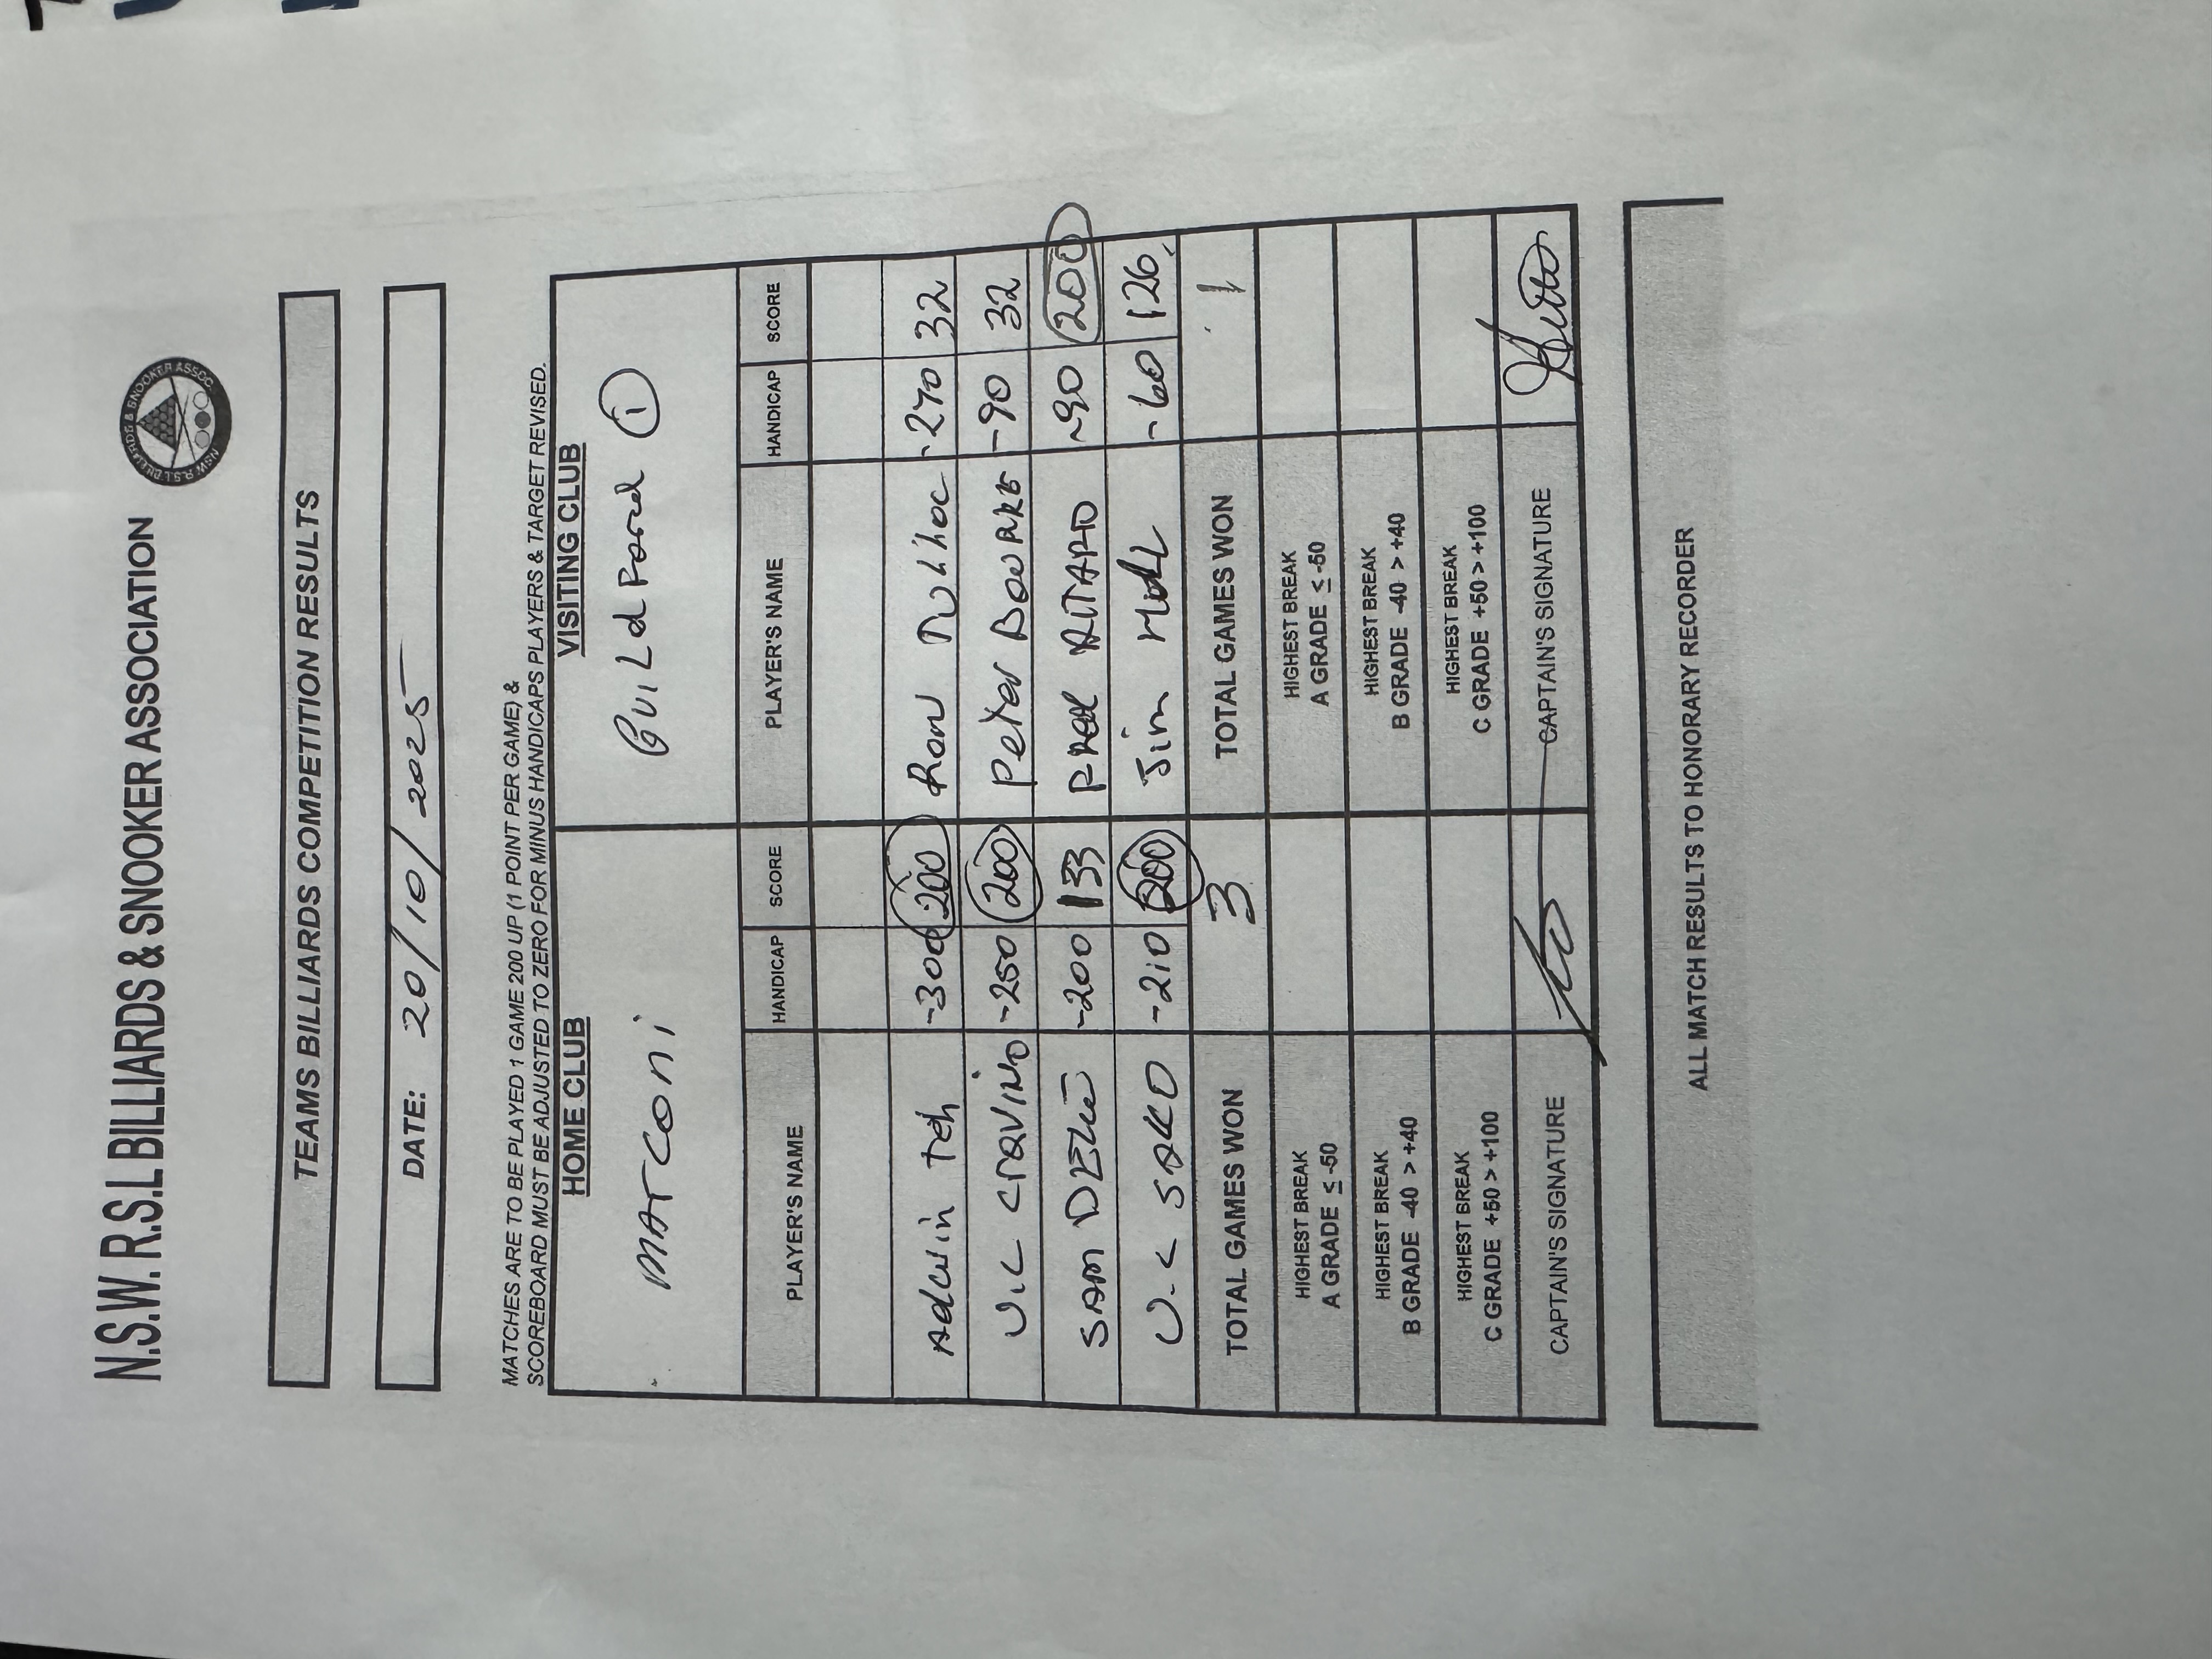 N.S.W. R.S.L BILLIARDS & SNOOKER ASSOCIATION
NSW R.S.L BILLIARDS & SNOOKER ASSOC.
TEAMS BILLIARDS COMPETITION RESULTS
DATE: 20/10/2025
MATCHES ARE TO BE PLAYED 1 GAME 200 UP (1 POINT PER GAME) &
SCOREBOARD MUST BE ADJUSTED TO ZERO FOR MINUS HANDICAPS PLAYERS & TARGET REVISED.
HOME CLUB VISITING CLUB
MARCONI GUILdFORd 1
PLAYER'S NAME HANDICAP SCORE PLAYER'S NAME HANDICAP SCORE
Adwin Teh -300 200 Ron -270 32
Vic CRAVINO -250 200 Peter BOURKE -90 32
SAM -200 133 FRED -90 200
Vic SAKO -210 200 Jim -60 126
TOTAL GAMES WON 3 TOTAL GAMES WON 1
HIGHEST BREAK HIGHEST BREAK
A GRADE ≤ -50 A GRADE ≤ -50
HIGHEST BREAK HIGHEST BREAK
B GRADE -40 > +40 B GRADE -40 > +40
HIGHEST BREAK HIGHEST BREAK
C GRADE +50 > +100 C GRADE +50 > +100
CAPTAIN'S SIGNATURE CAPTAIN'S SIGNATURE
ALL MATCH RESULTS TO HONORARY RECORDER